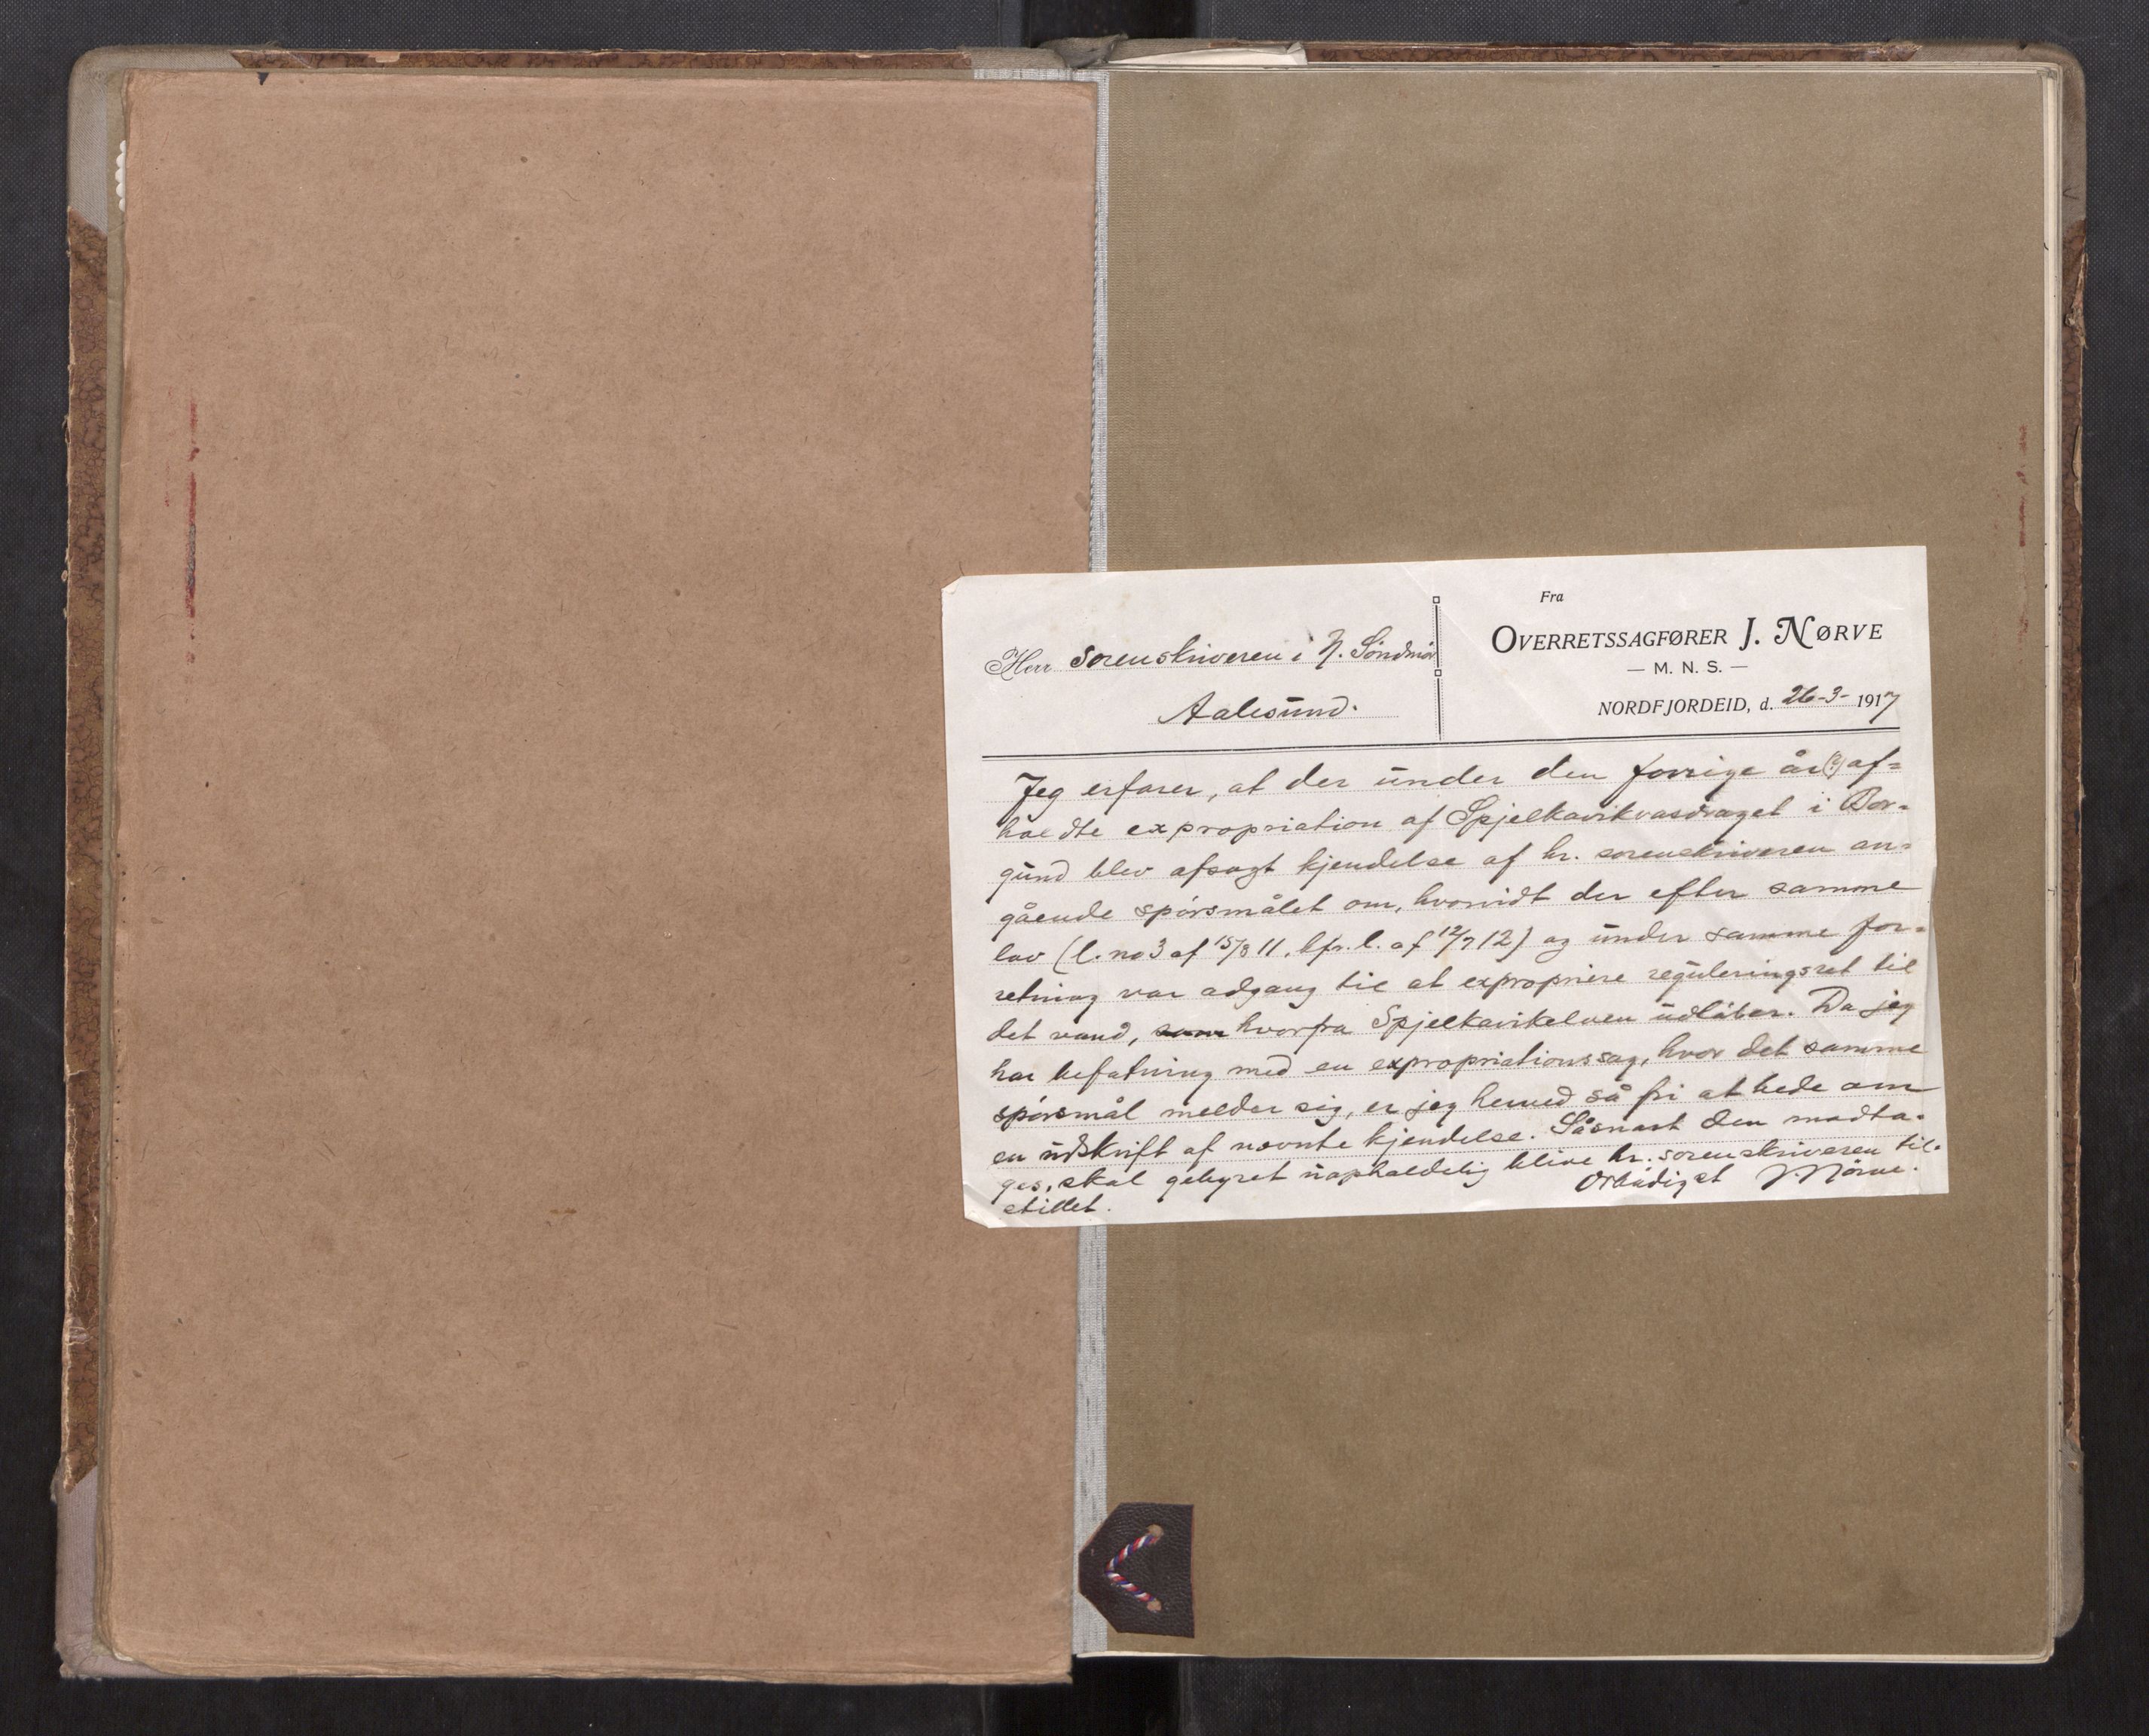 Herr Sorenskriveren i N. Söndmör
Aalesund.
Fra
OVERRETSSAGFØRER J. NØRVE
— M. N. S. —
NORDFJORDEID, d. 26-3- 1917
Jeg erfarer, at der under den forrige år(?) af=
holdte expropriation af Spjelkavikvasdraget i Bor=
gund blev afsagt kjendelse af hr. sorenskriveren an=
gående spörsmålet om, hvorvidt der efter samme
lov (l. no 3 af 15/8 11, kfr. l. af 12/7 12) og under samme for=
retning var adgang til at expropriere reguleringsret til
det vand, som hvorfra Spjelkavikelven udlöber. Da jeg
har befatning med en expropriationssag, hvor det samme
spörsmål melder sig, er jeg herved så fri at bede om
en udskrift af nævnte kjendelse. Såsnart den modta=
ges, skal gebyret uopholdelig blive hr. sorenskriveren til=
stillet.
Ærbödigst J. Nörve.